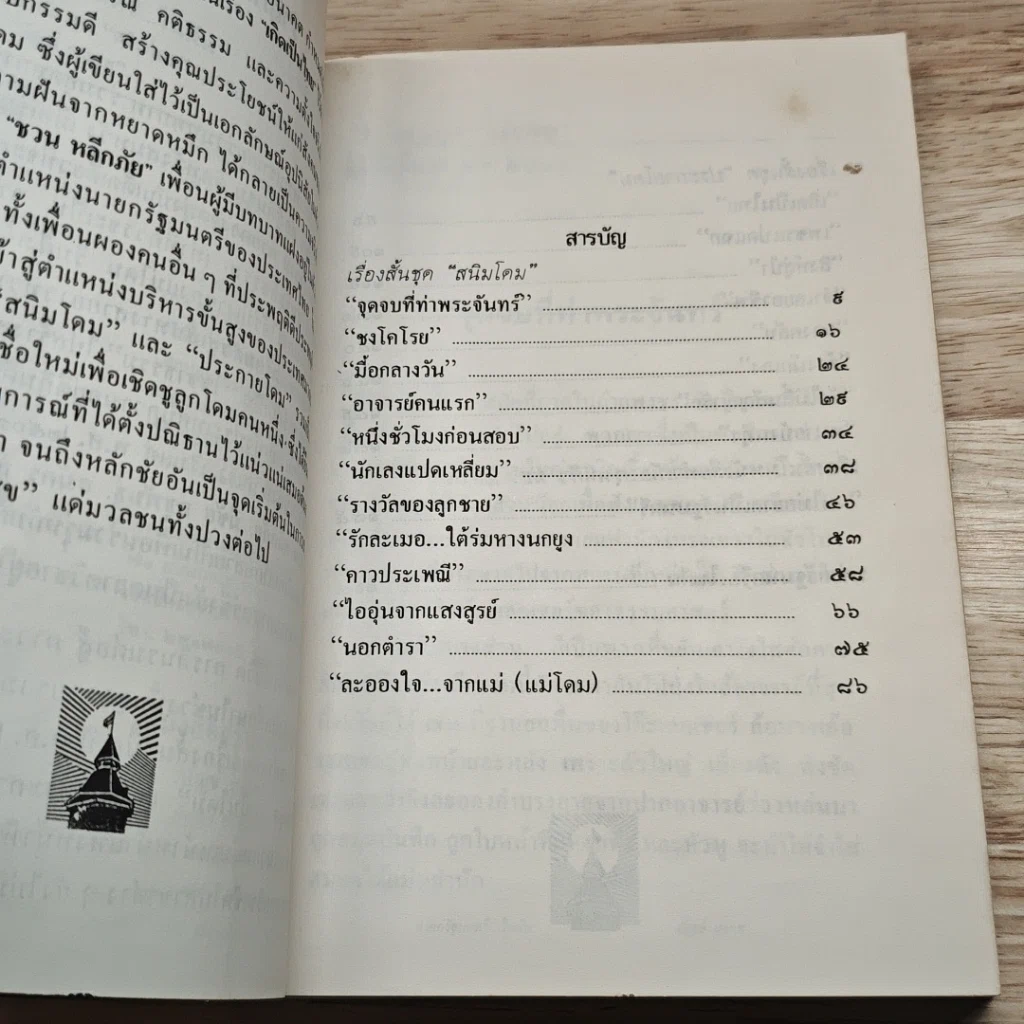 อนาคต
คติธรรม และความตั้งใจ
นเรื่อง "เกิดเป็นไทย"
ปกรรมดี สร้างคุณประโยชน์ให้แก่สังคม
ดม ซึ่งผู้เขียนใส่ไว้เป็นเอกลักษณ์อุปนิสัย
ามฝันจากหยาดหมึก ได้กลายเป็นความ
"ชวน หลีกภัย" เพื่อนผู้มีบทบาทแฝงอยู่
ตำแหน่งนายกรัฐมนตรีของประเทศไทย
ทั้งเพื่อนผองคนอื่น ๆ ที่ประพฤติ
ข้าสู่ตำแหน่งบริหารขั้นสูงของประเทศ
"สนิมโดม" และ "ประกายโดม" รวม
ชื่อใหม่เพื่อเชิดชูลูกโดมคนหนึ่ง ซึ่ง
การณ์ที่ได้ตั้งปณิธานไว้แน่วแน่เสมอ
า จนถึงหลักชัยอันเป็นจุดเริ่มต้นใน
ข" แด่มวลชนทั้งปวงต่อไป
สารบัญ
เรื่องสั้นชุด "สนิมโดม"
"จุดจบที่ท่าพระจันทร์" ๙
"ชงโคโรย" ๑๖
"มื้อกลางวัน" ๒๔
"อาจารย์คนแรก" ๒๙
"หนึ่งชั่วโมงก่อนสอบ" ๓๔
"นักเลงแปดเหลี่ยม" ๓๘
"รางวัลของลูกชาย" ๔๖
"รักละเมอ...ใต้ร่มหางนกยูง ๕๓
"คาวประเพณี" ๕๘
"ไออุ่นจากแสงสูรย์ ๖๖
"นอกตำรา" ๗๕
"ละอองใจ...จากแม่ (แม่โดม) ๘๖